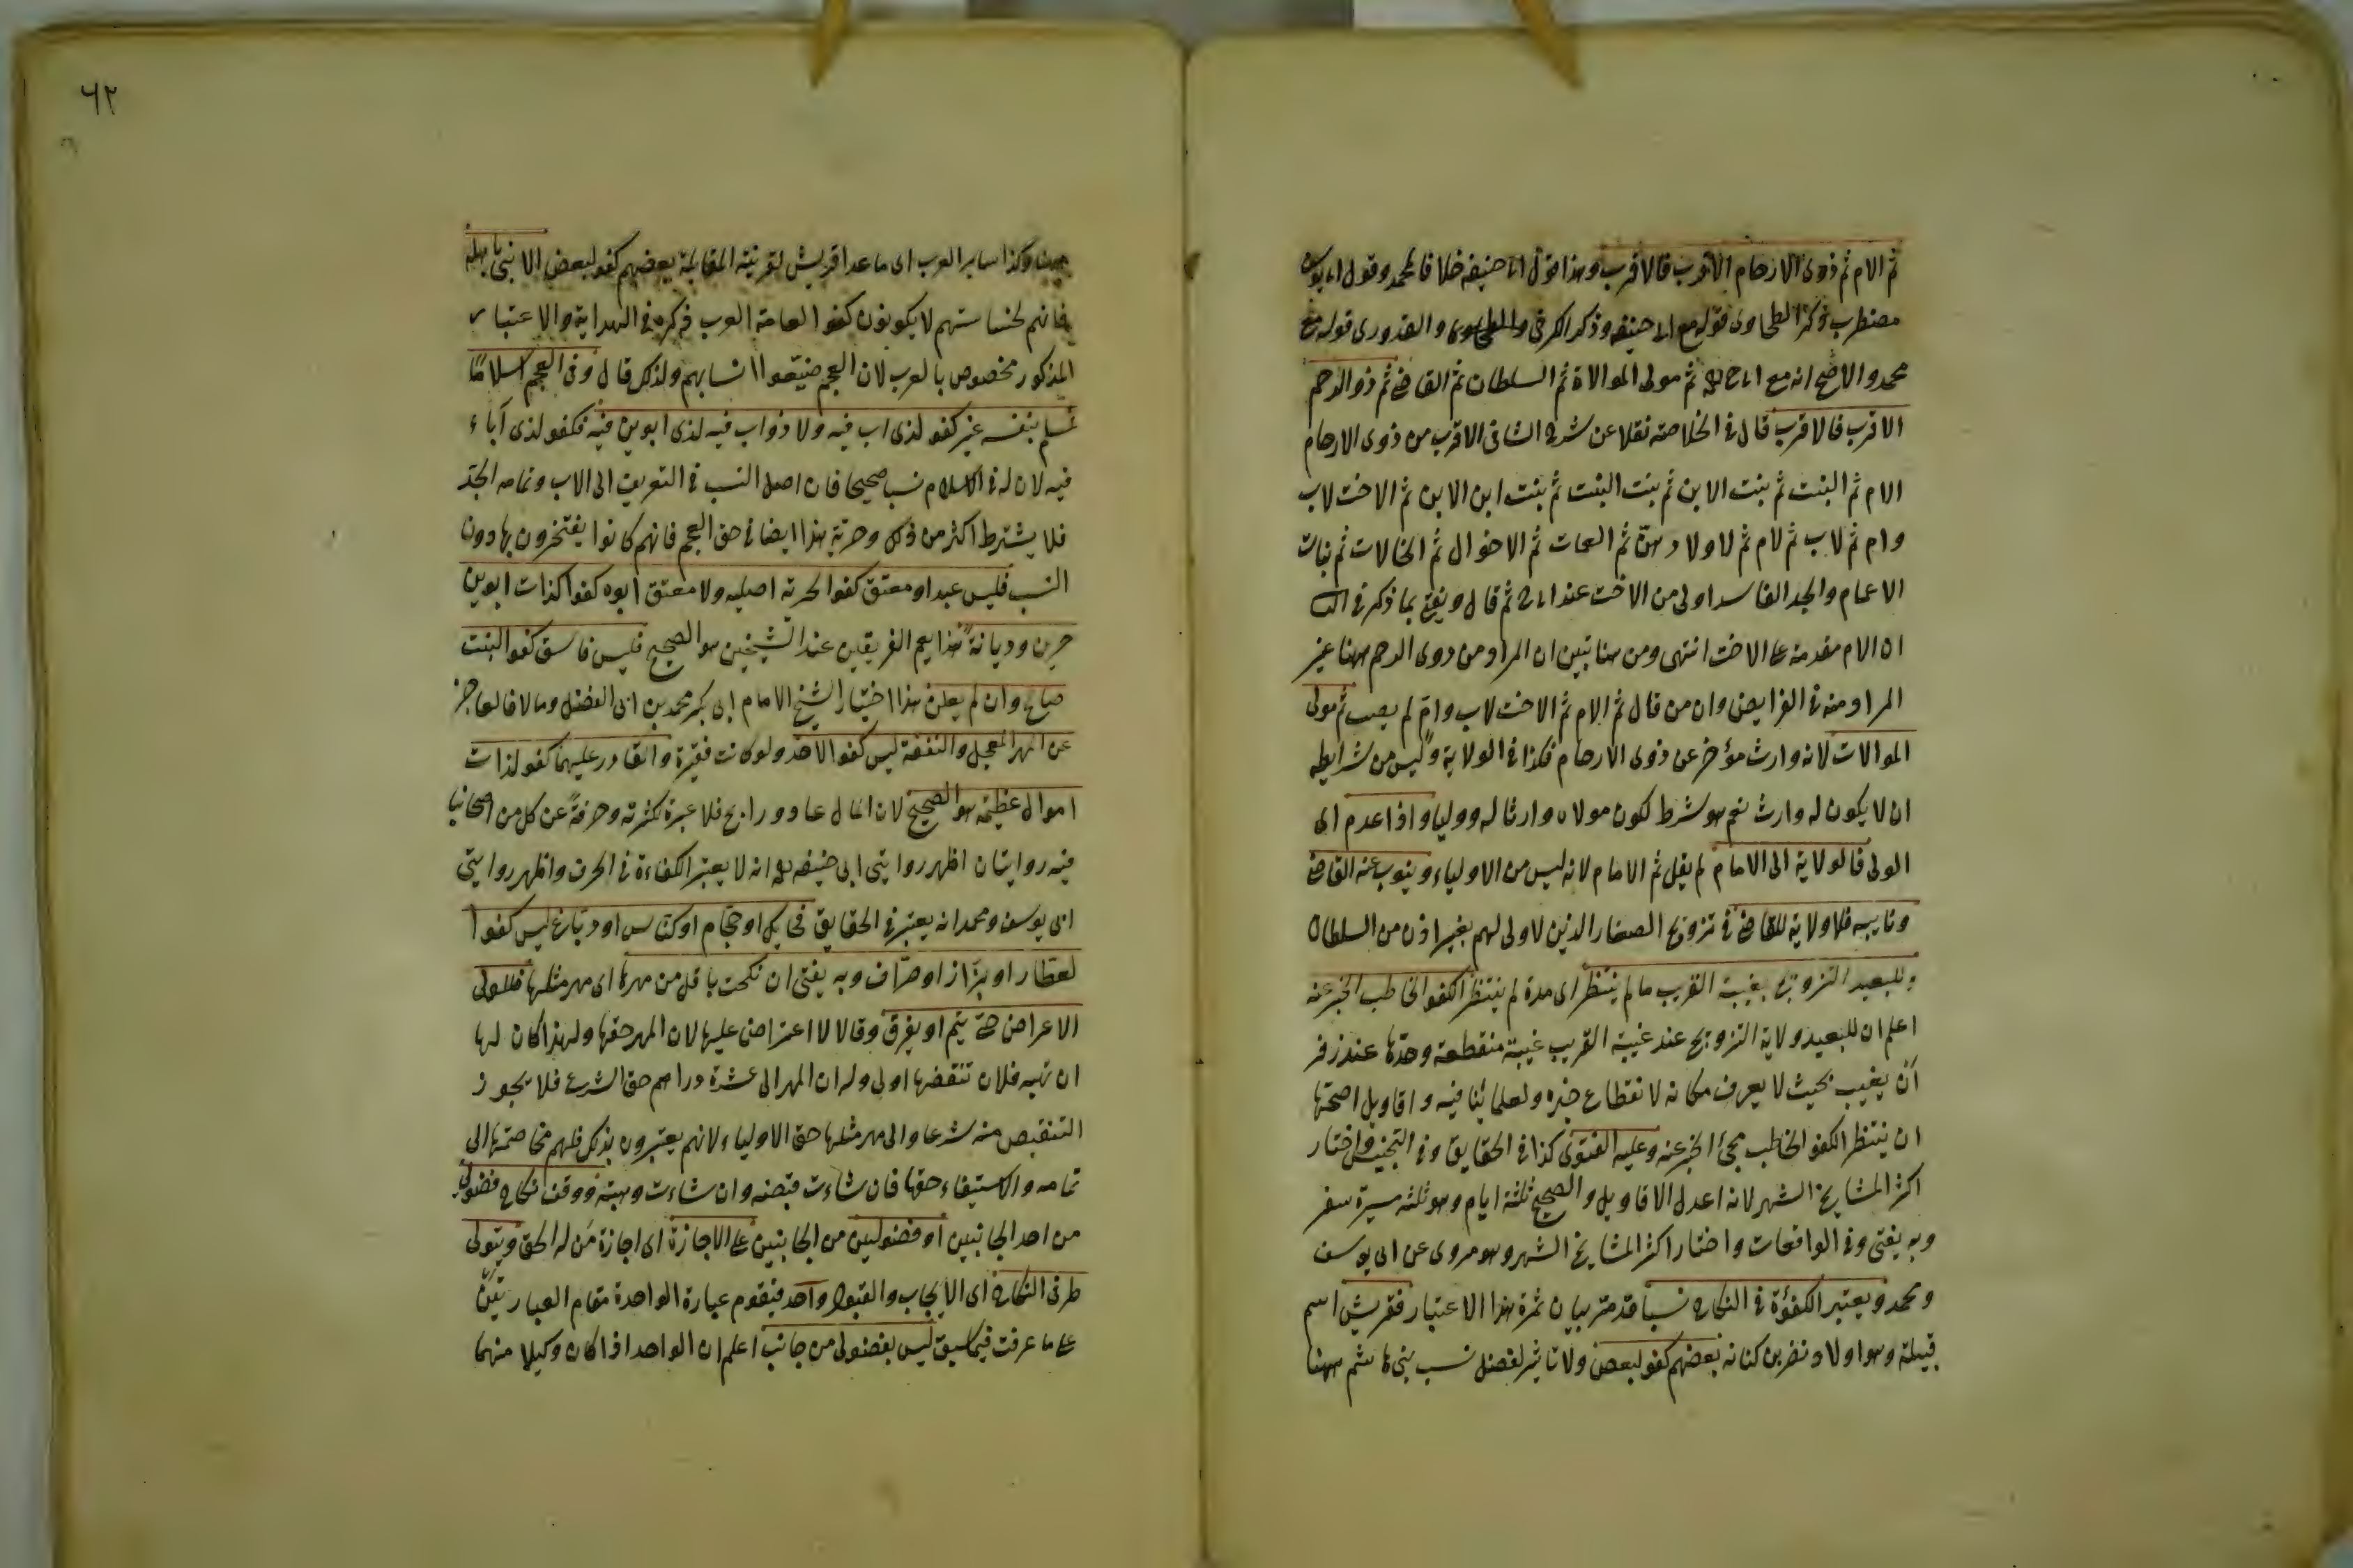 ثم الام ثم ذوى الارحام الاقرب فالاقرب وهذا قول ابى حنيفه خلافا لمحمد وقول ابى يوسف
مضطرب ذكر الطحاوى قوله مع ابى حنيفه وذكر الكرخى والقدورى قوله مع
محمد والاصح انه مع ابى ح ثم مولى الموالاة ثم السلطان ثم القاضى ثم ذو الرحم
الاقرب فالاقرب قال فى الخلاصة نقلا عن شرح الشافى الاقرب من ذوى الارحام
الام ثم البنت ثم بنت الابن ثم بنت البنت ثم بنت ابن الابن ثم الاخت لاب
وام ثم لاب ثم لام ثم لاولادهن ثم العمات ثم الاخوال ثم الخالات ثم بنات
الاعمام والجد الفاسد اولى من الاخت عند ابى ح ثم قال ويفتى بما ذكر فى
ان الام مقدمة على الاخت انتهى ومن هنا تبين ان المراد من ذوى الرحم ههنا غير
المراد منه فى الفرايض وان من قال ثم الام ثم الاخت لاب وام لم يصب ثم مولى
الموالات لانه وارث مؤخر عن ذوى الارحام فكذا فى الولاية وليس من شرايطه
ان لا يكون له وارث نعم هو شرط لكون مولاه وارثا له ووليا واذا عدم اى
الولى فالولاية الى الامام لم يقل ثم الامام لانه ليس من الاولياء وينوب عنه القاضى
ونايبه فلا ولاية للقاضى فى تزويج الصغار الذين لا ولى لهم بغير اذن من السلطان
وللبعيد التزويج بغيبة القريب ما لم ينتظر اى مدة لم ينتظر الكفو الخاطب الخبر عنه
اعلم ان للبعيد ولاية التزويج عند غيبة القريب غيبة منقطعة وحدها عند زفر
ان يغيب بحيث لا يعرف مكانه لانقطاع خبره ولعلمائنا فيه واقاويل اصحها
ان ينتظر الكفو الخاطب مجئ الخبر عنه وعليه الفتوى كذا فى الحقايق وفى التجنيس واختار
اكثر المشايخ الشهر لانه اعدل الاقاويل والصحيح ثلثة ايام وهو ثلثه مسيرة سفر
وبه يفتى وفى الواقعات واختار اكثر المشايخ الشهر وهو مروى عن ابى يوسف
ومحمد ويعتبر الكفؤة فى النكاح نسبا قد متر بيان ثمرة هذا الاعتبار فقريش اسم
قبيلة وهو اولاد نضر بن كنانه بعضهم كفو لبعض ولا تاثير لفضل نسب بنى هاشم ههنا
٦٢
وكذا ساير العرب اى ما عدا قريش لقرينة المقابلة بعضهم كفو لبعض الا بنى باهلة
فانهم لخساستهم لا يكونون كفو العامة العرب ذكره فى الهداية والاعتبار
المذكور مخصوص بالعرب لان العجم ضيّعوا انسابهم ولذلك قال وفى العجم اسلامًا
فمسلم بنفسه غير كفو لذى اب فيه ولا ذو اب فيه لذى ابوين فيه فكفو لذى آباء
فيه لان له فى الاسلام نسبا صحيحا فان اصل النسب فى التعريف الى الاب وتمامه الجد
فلا يشترط اكثر من ذلك وحرية هذا ايضا فى حق العجم فانهم كانوا يفتخرون بها دون
النسب فليس عبد او معتق كفوا لحرة اصليه ولا معتق ابوه كفوا لذات ابوين
حرين وديانة هذا يعم الفريقين عند الشيخين هو الصحيح فليس فاسق كفوا لبنت
صالح وان لم يعلن هذا اختيار الشيخ الامام ابى بكر محمد بن ابى الفضل ومالا فالعاجز
عن المهر المعجل والنفقة ليس كفوا لاحد ولو كانت فقيرة والقادر عليهما كفو لذات
اموال عظيمة هو الصحيح لان المال غاد ورايح فلا عبرة لكثرته وحرفة عن كل من اصحابنا
فيه روايتان اظهر روايتى ابى حنيفه انه لا يعتبر الكفاءة فى الحرف واظهر روايتى
ابى يوسف ومحمد انه يعتبر فى الحقايق فحايك او حجام او كناس او دباغ ليس كفوا
لعطار او بزّاز او صرّاف وبه يفتى ان نكحت باقل من مهرها اى مهر مثلها فللولى
الاعراض حتى يتم او يفرق وقالا لا اعتراض عليها لان المهر حقها ولهذا كان لها
ان تهبه فلان تنقصها اولى وله ان المهر الى عشرة دراهم حق الشرع فلا يجوز
التنقيص منه شرعا والى مهر مثلها حق الاولياء لانهم يعتبرون بذلك فلهم مخاصمتها الى
تمامه والاستيفاء حقها فان شاءت قبضته وان شاءت وهبته ووقف نكاح فضولى
من احد الجانبين او فضوليين من الجانبين على الاجازة اى اجازة من له الحق ويتولى
طرفى النكاح اى الايجاب والقبول واحد فيقوم عبارة الواحدة مقام العبارتين
على ما عرفت فيما سبق ليس بفضولى من جانب اعلم ان الواحد اذا كان وكيلا منهما